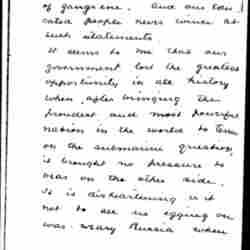 of gangrene. And our edu-
cated people never wince at
such statements.
It seems to me that our
government lost the greatest
opportunity in all history
when, after bringing the
proudest and most powerful
nation in the world to terms
on the submarine question,
it brought no pressure to
bear on the other side.
It is disheartening is it
not to see us egging on
war-weary Russia when